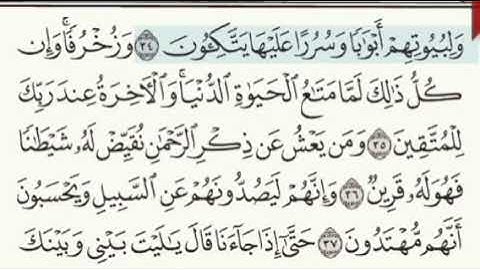 وَلِبُيُوتِهِمْ أَبْوَٰبًا وَسُرُرًا عَلَيْهَا يَتَّكِـُٔونَ ٣٤ وَزُخْرُفًا ۚ وَإِن
كُلُّ ذَٰلِكَ لَمَّا مَتَـٰعُ الْحَيَوٰةِ الدُّنْيَا ۚ وَالْـَٔاخِرَةُ عِندَ رَبِّكَ
لِلْمُتَّقِينَ ٣٥ وَمَن يَعْشُ عَن ذِكْرِ الرَّحْمَـٰنِ نُقَيِّضْ لَهُۥ شَيْطَـٰنًا
فَهُوَ لَهُۥ قَرِينٌ ٣٦ وَإِنَّهُمْ لَيَصُدُّونَهُمْ عَنِ السَّبِيلِ وَيَحْسَبُونَ
أَنَّهُم مُّهْتَدُونَ ٣٧ حَتَّىٰٓ إِذَا جَآءَنَا قَالَ يَـٰلَيْتَ بَيْنِى وَبَيْنَكَ